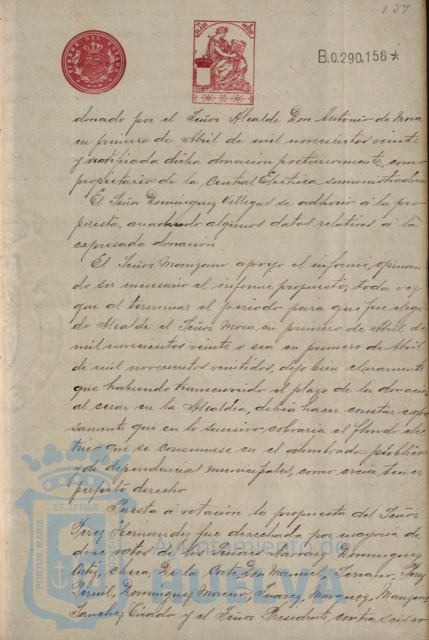 137
TIMBRE DEL ESTADO
B.0.290.158*
donado por el Señor Alcalde Don Antonio de Mora
en primero de Abril de mil novecientos veinte
y ratificada dicha donacion posteriormente, como
propietario de la Central Electrica suministradora
El Señor Dominguez Villegas se adhirio a la pro
puesta, anadiendo algunos datos relativos a la
expresada donacion
El Señor Manzano apoyo el informe, opinan
do ser necesario el informe propuesto, toda vez
que al terminar el periodo para que fue elegi
do Alcalde el Señor Mora en primero de Abril de
mil novecientos veinte o sea en primero de Abril
de mil novecientos veintidos, dejo bien claramente
que habiendo transcurrido el plazo de la donacion
al cesar en la Alcaldia, debia hacer constar expre
samente que en lo sucesivo cobraria el fluido elec
trico que se consumiese en el alumbrado público
y de dependencias municipales, como creia tener
perfecto derecho
Puesta a votación la propuesta del Señor
Perez Hernandez fue desechada por mayoria de
doce votos de los Señores Narvaez, Dominguez
Ortiz, Checa, De la Corte, Don Manuel, Serrano, Perez
Dominguez Moreno, Suarez, Marquez, Manzano
Sanchez Criado y el Señor Presidente contra seis
PORTUS MARIS ET TERRAE
Ayuntamiento de
HUELVA